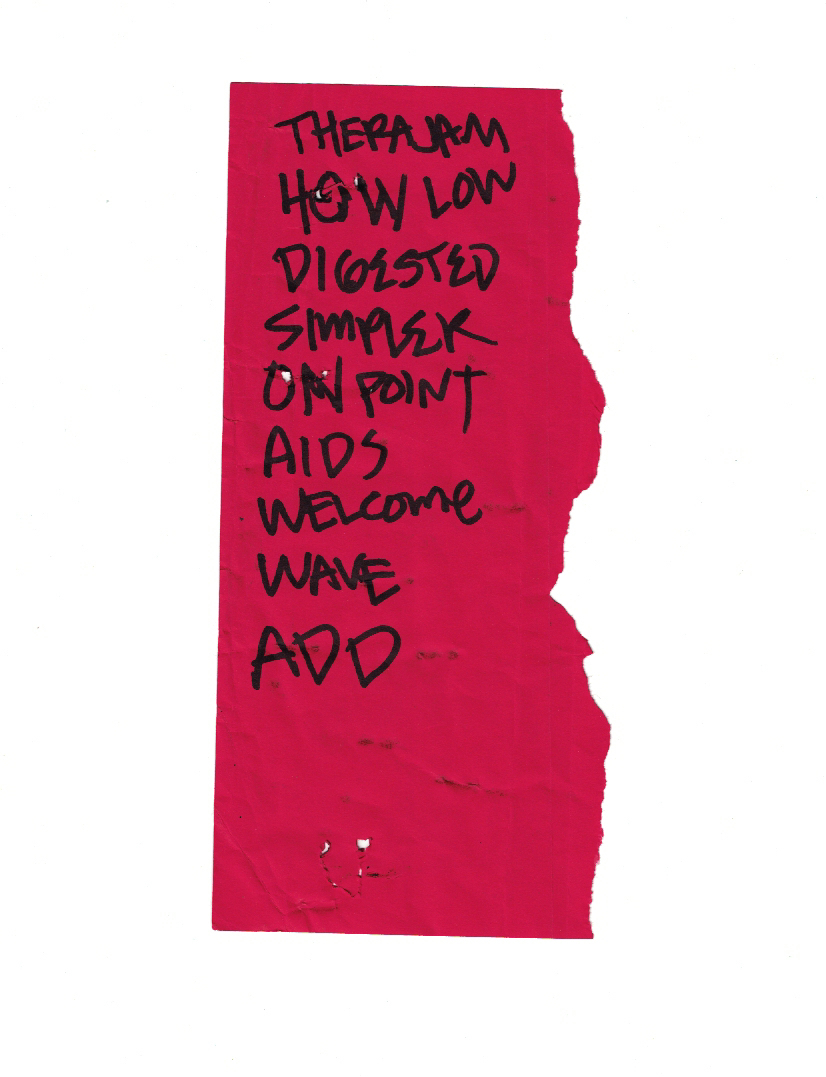 THERAJAM
HOW LOW
DIGESTED
SIMPLER
ON POINT
AIDS
WELCOME
WAVE
ADD